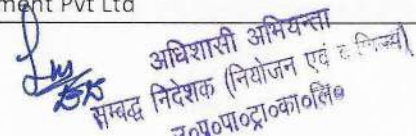 ment Pvt Ltd
अधिशासी अभियन्ता
सम्बद्ध निदेशक (नियोजन एवं वाणिज्य)
उ०प्र०पा०ट्रा०का०लि०